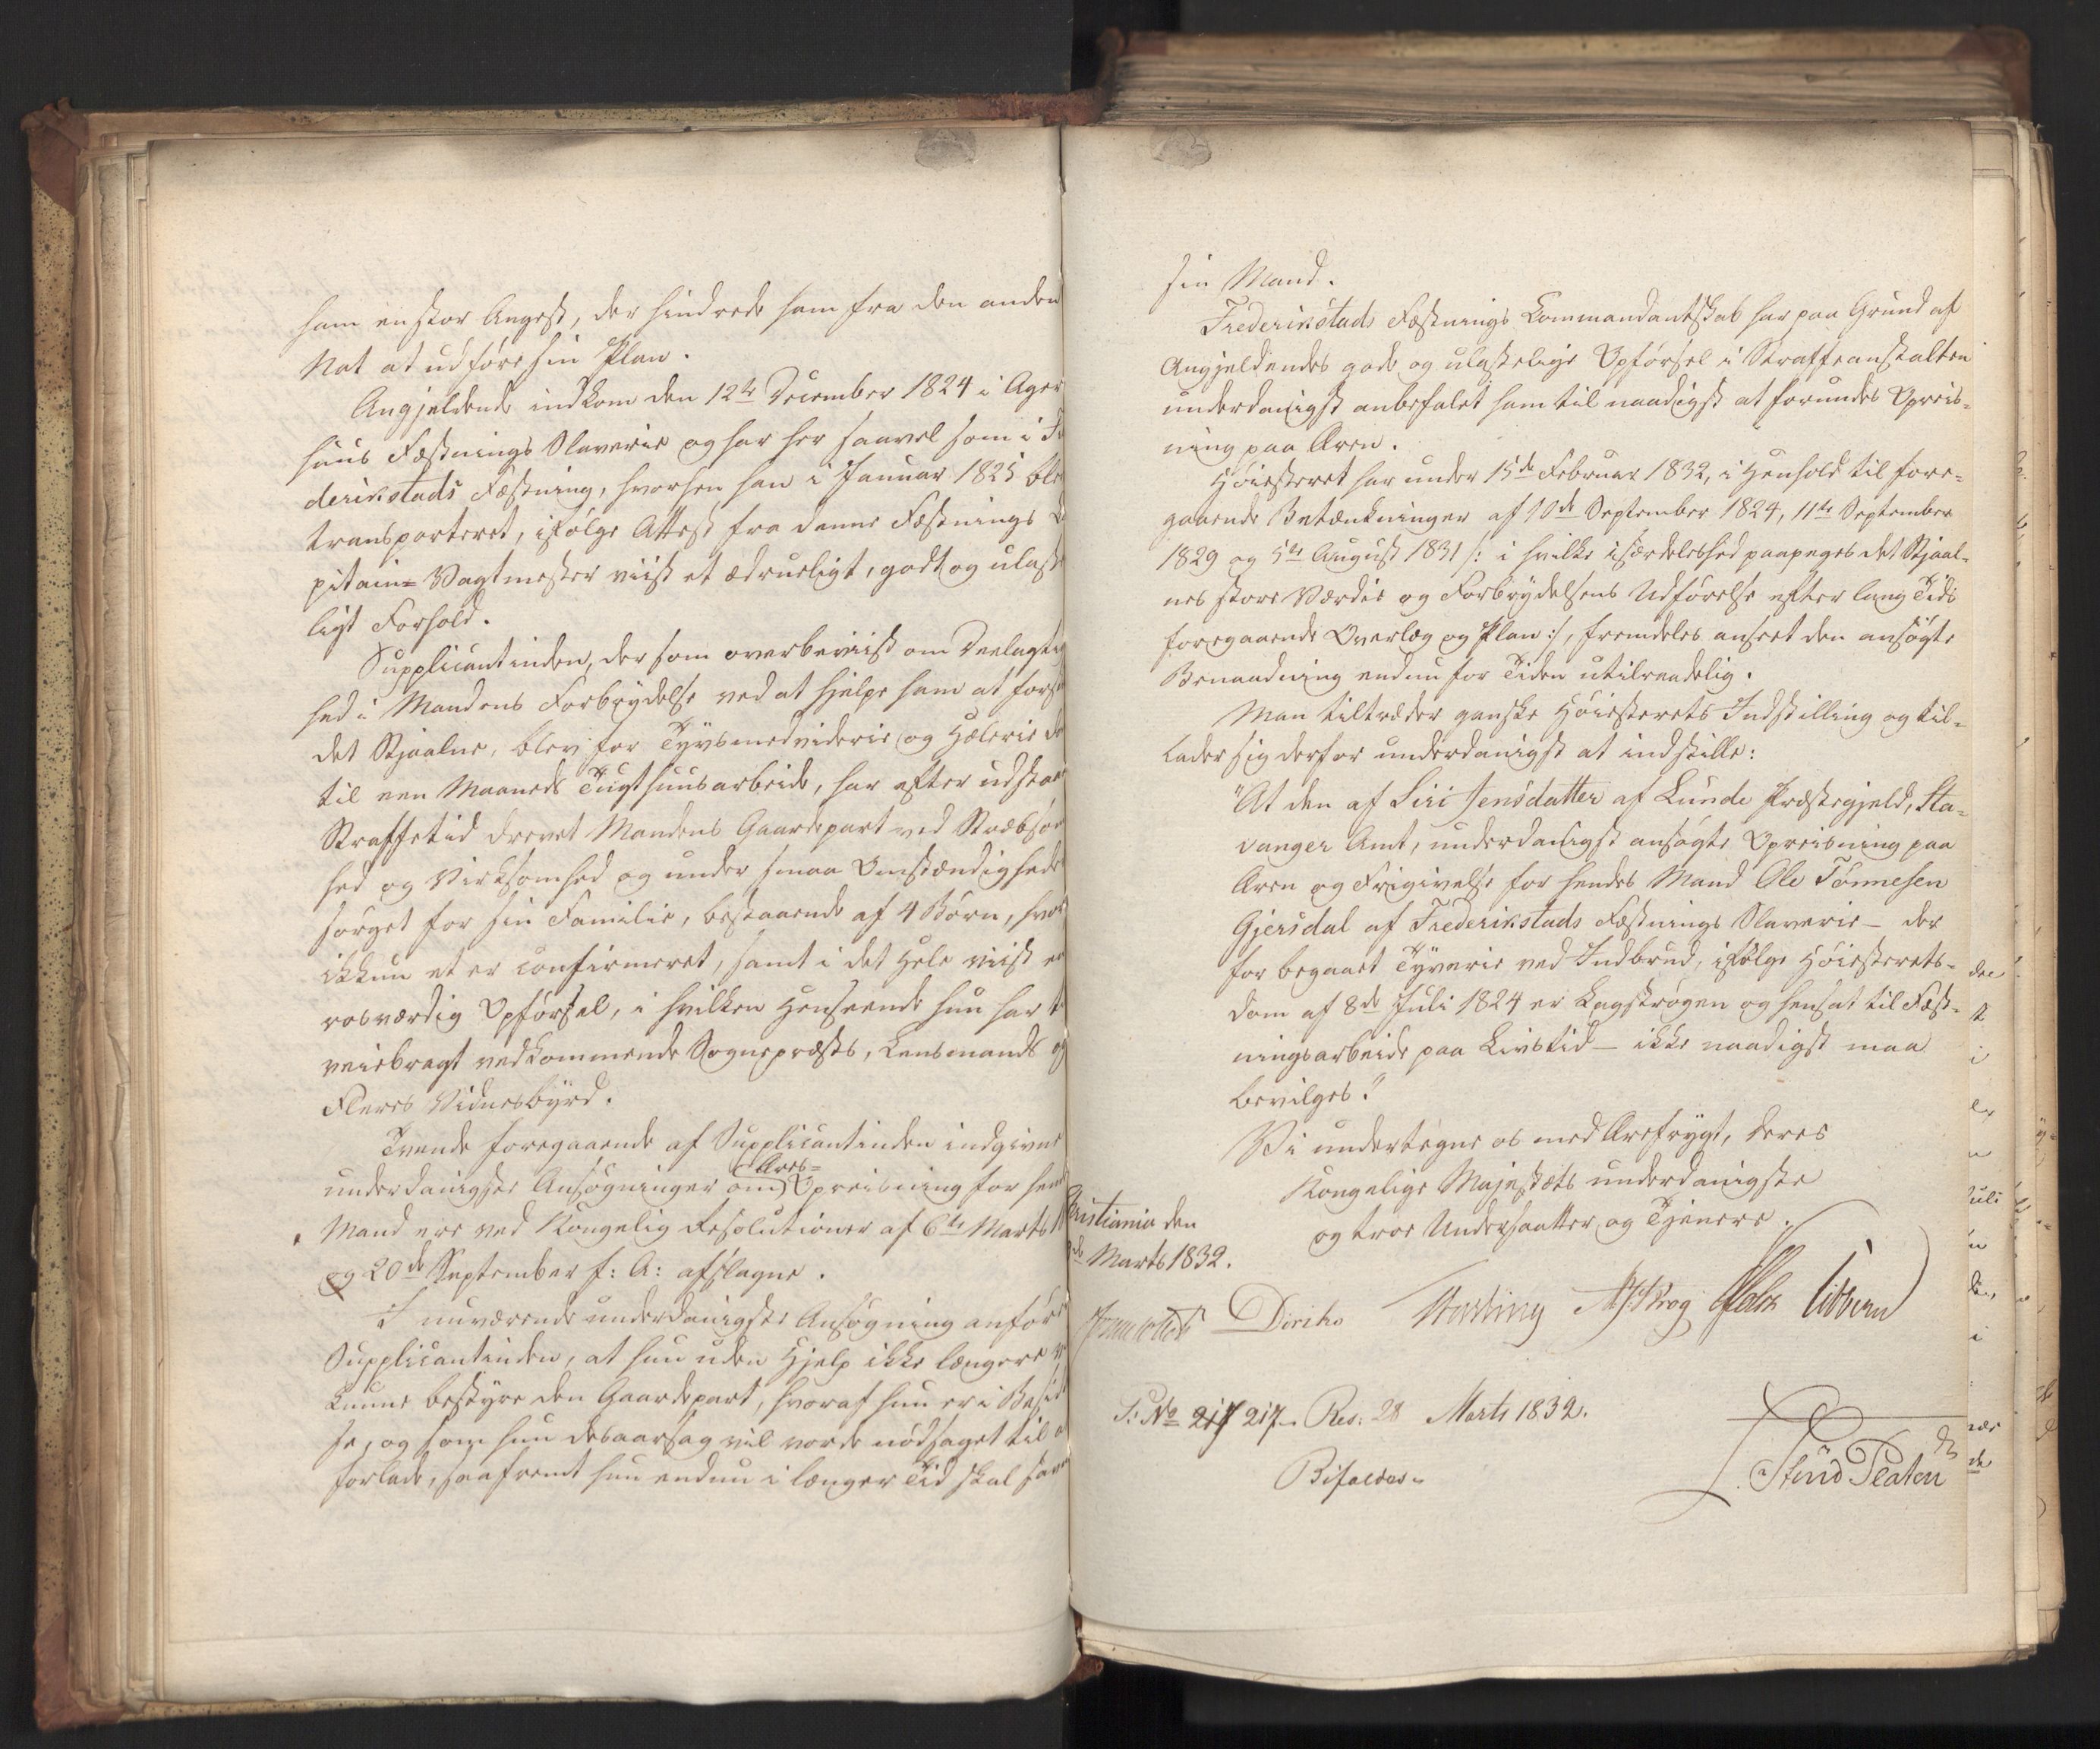 ham en stor Angest, der hindrede ham fra den anden
Nat at udføre sin Plan.
Angjeldende indkom den 12te December 1824 i Ager
huus Fæstnings Slaverie og har her saavel som i Fre
derikstads Fæstning, hvorhen han i Januar 1825 blev
transporteret, ifølge Attest fra denne Fæstnings Ca
pitain-Vagtmester viist et ædrueligt, godt og ulaste
ligt Forhold.
Supplicantinden, der som overbeviist om Deelagtig
hed i Mandens Forbrydelse ved at hjelpe ham at
det Stjaalne, blev for Tyvsmedviderie og Hælerie
til een Maaneds Tugthuusarbeide, har efter udstaaet
Straffetid drevet Mandens Gaardepart med Stræbsom
hed og Virksomhed og under smaa Omstændigheder
sørget for sin Familie, bestaaende af 4 Børn, hvoraf
ikkun et er confirmeret, samt i det Hele viist en
rosværdig Opførsel, i hvilken Henseende hun har til
veiebragt vedkommende Sognepræsts, Lensmands og
Fleres Vidnesbyrd.
Tvende foregaaende af Supplicantinden indgivne
Æres-
underdanigste Ansøgninger om Opreisning for hendes
Mand ere ved Kongelig Resolutioner af 6te Marts
og 20de September f: A: afslagne.
I nuværende underdanigste Ansøgning anfører
Supplicantinden, at hun uden Hjelp ikke længere
kunne bestyre den Gaardepart, hvoraf hun er i Besid
se, og som hun desaarsag vil vorde nødsaget til at
forlade, saafremt hun endnu i længer Tid skal savne
sin Mand.
Frederikstads Fæstnings Commandantskab har paa Grund af
Angjeldendes gode og ulastelige Opførsel i Straffeanstalten
underdanigst anbefalet ham til naadigst at forundes Opreis-
ning paa Æren.
Høiesteret har under 15de Februar 1832, i Henhold til fore-
gaaende Betænkninger af 10de September 1824, 11te September
1829 og 5te August 1831 /: i hvilke isærdeleshed paapeges det Stjaal-
nes store Værdie og Forbrydelsens Udførelse efter lang Tids
foregaaende Overlæg og Plan :/, fremdeles anseet den ansøgte
Benaadning endnu for Tiden utilraadelig.
Man tiltræder ganske Høiesterets Indstilling og til-
lader sig derfor underdanigst at indstille:
"At den af Siri Jensdatter af Lunde Præstegjeld, Sta-
vanger Amt, underdanigst ansøgte Opreisning paa
Æren og Frigivelse for hendes Mand Ole Tønnesen
Gjersdal af Frederikstads Fæstnings Slaverie - der
for begaaet Tyverie ved Indbrud, ifølge Høiesterets-
dom af 8de Juli 1824 er kagstrøgen og hensat til Fæst-
ningsarbeide paa Livstid - ikke naadigst maa
bevilges."
Vi undertegne os med Ærefrygt, Deres
Kongelige Majestæts underdanigste
og troe Undersaatter og Tjenere.
Christiania den
Marts 1832.
Diriks Motzfeldt Krog Holst Sibbern
S: No 217 217. Res: 28 Marts 1832.
Bifaldes.
Sküld Platen